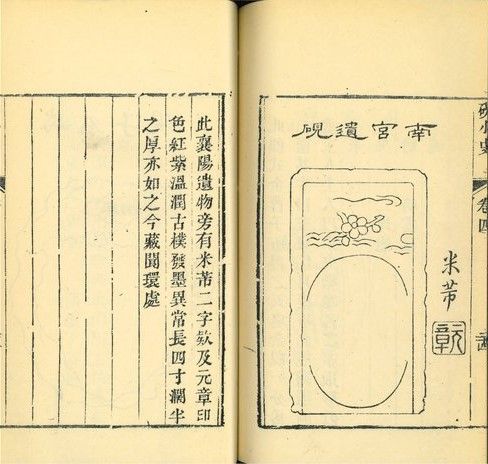 卷四
南宮遺硯
米芾
元章
此襄陽遺物旁有米芾二字欵及元章印
色紅紫溫潤古樸發墨異常長四寸濶半
之厚亦如之今藏聞環處